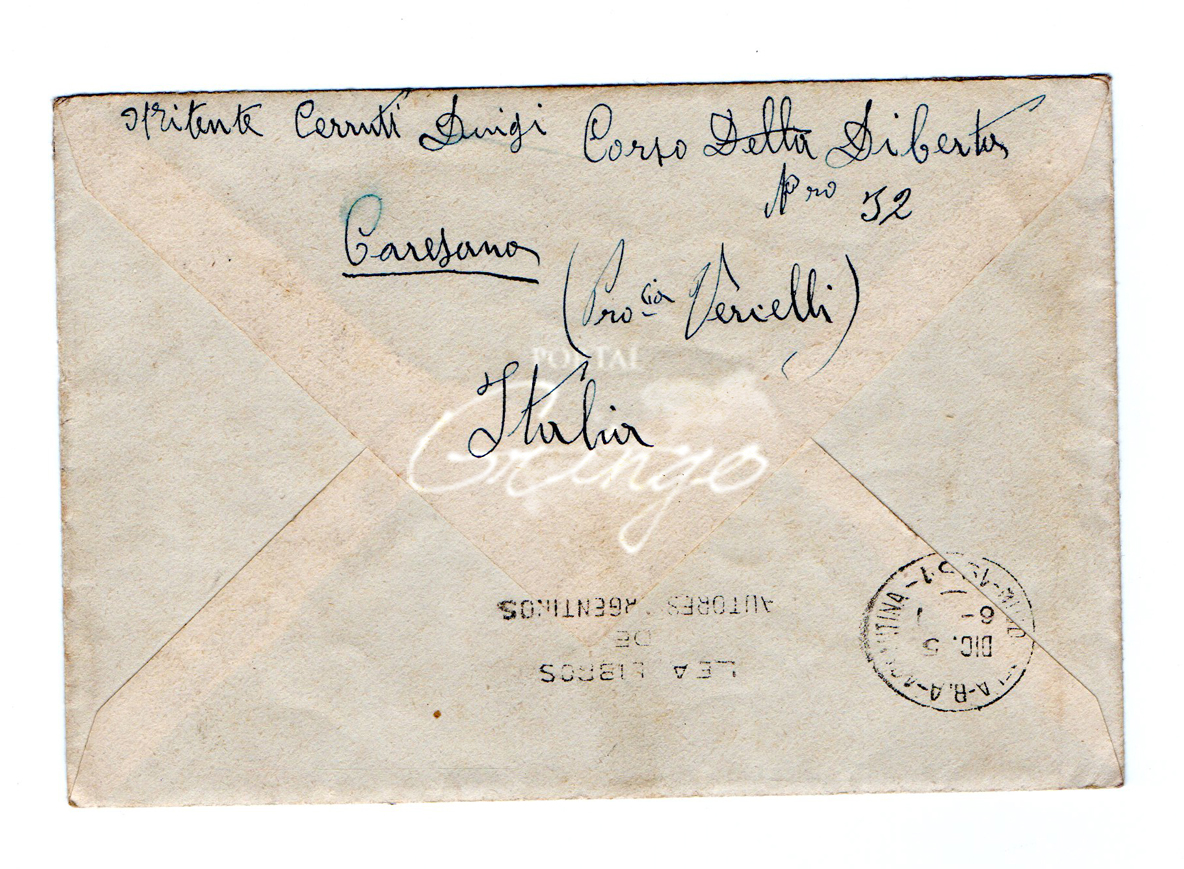 Mitente Cerruti Luigi Corso Della Liberta
Nro 32
Caresana
(Procia Vercelli)
Italia
PORTAL
Gringo
LEA LIBROS
DE
AUTORES ARGENTINOS
DIC. 5
6-